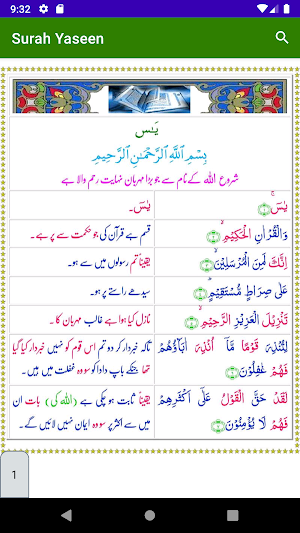 9:32
Surah Yaseen
یٰسٓ
بِسْمِ ٱللَّهِ ٱلرَّحْمَٰنِ ٱلرَّحِيمِ
شروع اللہ کے نام سے جو بڑا مہربان نہایت رحم والا ہے
یٰسٓ ۚ ﴿۱﴾
یٰسٓ۔
وَالْقُرْاٰنِ الْحَكِیْمِ ۙ ﴿۲﴾
قسم ہے قرآن کی جو حکمت سے پر ہے۔
اِنَّكَ لَمِنَ الْمُرْسَلِیْنَ ۙ ﴿۳﴾
یقیناً تم رسولوں میں سے ہو۔
عَلٰی صِرَاطٍ مُّسْتَقِیْمٍ ؕ ﴿۴﴾
سیدھے راستے پر ہو۔
تَنْزِیْلَ الْعَزِیْزِ الرَّحِیْمِ ۙ ﴿۵﴾
نازل کیا ہوا ہے غالب مہربان کا۔
لِتُنْذِرَ قَوْمًا مَّاۤ اُنْذِرَ اٰبَآؤُهُمْ
فَهُمْ غٰفِلُوْنَ ﴿۶﴾
تاکہ خبردار کر دو تم اس قوم کو نہیں خبردار کیا گیا
تھا جنکے باپ دادا کو سو وہ غفلت میں ہیں۔
لَقَدْ حَقَّ الْقَوْلُ عَلٰۤی اَكْثَرِهِمْ
فَهُمْ لَا یُؤْمِنُوْنَ ﴿۷﴾
یقیناً ثابت ہو چکی ہے (اللہ کی) بات ان
میں سے اکثر پر سو وہ ایمان نہیں لائیں گے۔
1